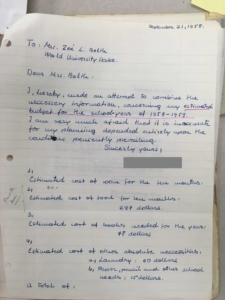 September 21, 1958.
To: Mrs. Zoë L.
World University Service.
Dear Mrs.
I, hereby, made an attempt to combine the
necessary information, concerning my estimated
budget for the school-year of 1958-1959.
I am very much afraid that it is inaccurate
for my planning depended entirely upon the
conditions presently prevailing.
Sincerely yours,
1,
Estimated cost of room for the ten months:
2,
Estimated cost of food for ten months:
dollars.
3,
Estimated cost of books needed for the year:
dollars
4,
Estimated cost of other absolute necessities:
a, Laundry: dollars
b, Paper, pencil and other school
needs: 15 dollars.
A Total of: